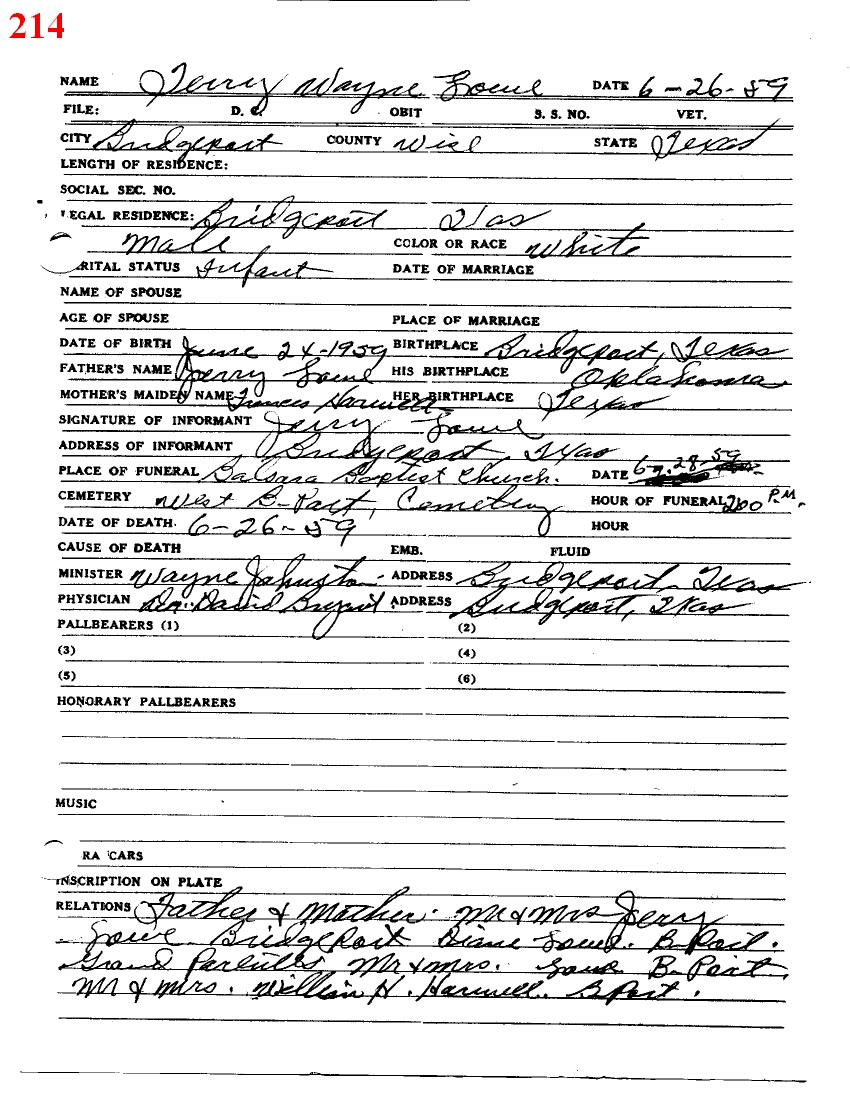 214
NAME Terry Wayne Lowe DATE 6-26-59
FILE: D. C. OBIT S. S. NO. VET.
CITY Bridgeport COUNTY Wise STATE Texas
LENGTH OF RESIDENCE:
SOCIAL SEC. NO.
LEGAL RESIDENCE: Bridgeport Texas
Male COLOR OR RACE White
RITAL STATUS Infant DATE OF MARRIAGE
NAME OF SPOUSE
AGE OF SPOUSE PLACE OF MARRIAGE
DATE OF BIRTH June 24-1959 BIRTHPLACE Bridgeport, Texas
FATHER'S NAME Jerry Lowe HIS BIRTHPLACE Oklahoma
MOTHER'S MAIDEN NAME Frances Harwell HER BIRTHPLACE Texas
SIGNATURE OF INFORMANT Jerry Lowe
ADDRESS OF INFORMANT Bridgeport, Texas
PLACE OF FUNERAL Balsora Baptist Church. DATE 6-28-59
CEMETERY West B-Port, Cemetery HOUR OF FUNERAL 200 P.M.
DATE OF DEATH. 6-26-59 HOUR
CAUSE OF DEATH EMB. FLUID
MINISTER Wayne Johnston ADDRESS Bridgeport, Texas
PHYSICIAN Dr. David ADDRESS Bridgeport, Texas
PALLBEARERS (1) (2)
(3) (4)
(5) (6)
HONORARY PALLBEARERS
MUSIC
RA CARS
INSCRIPTION ON PLATE
RELATIONS Father & Mother. Mr & Mrs Jerry
Lowe Bridgeport Diane Lowe. B-Port.
Grand Parents Mr & Mrs. Lowe B-Port.
Mr & Mrs. William H. Harwell. B Port.